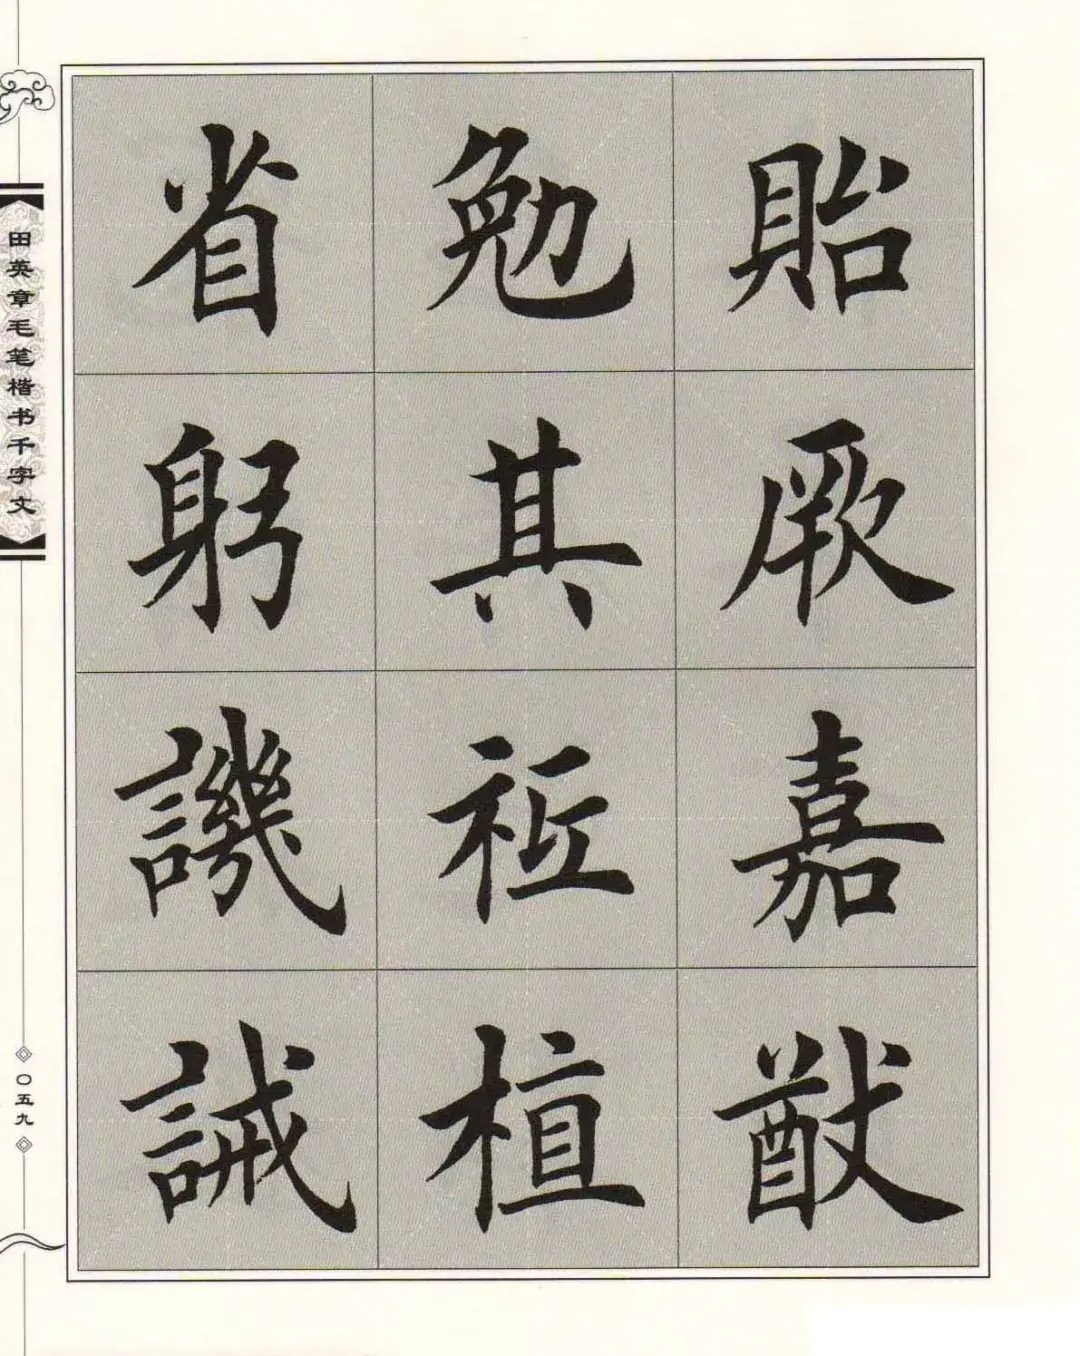 貽厥嘉猷
勉其祗植
省躬譏誡
田英章毛笔楷书千字文
〇五九